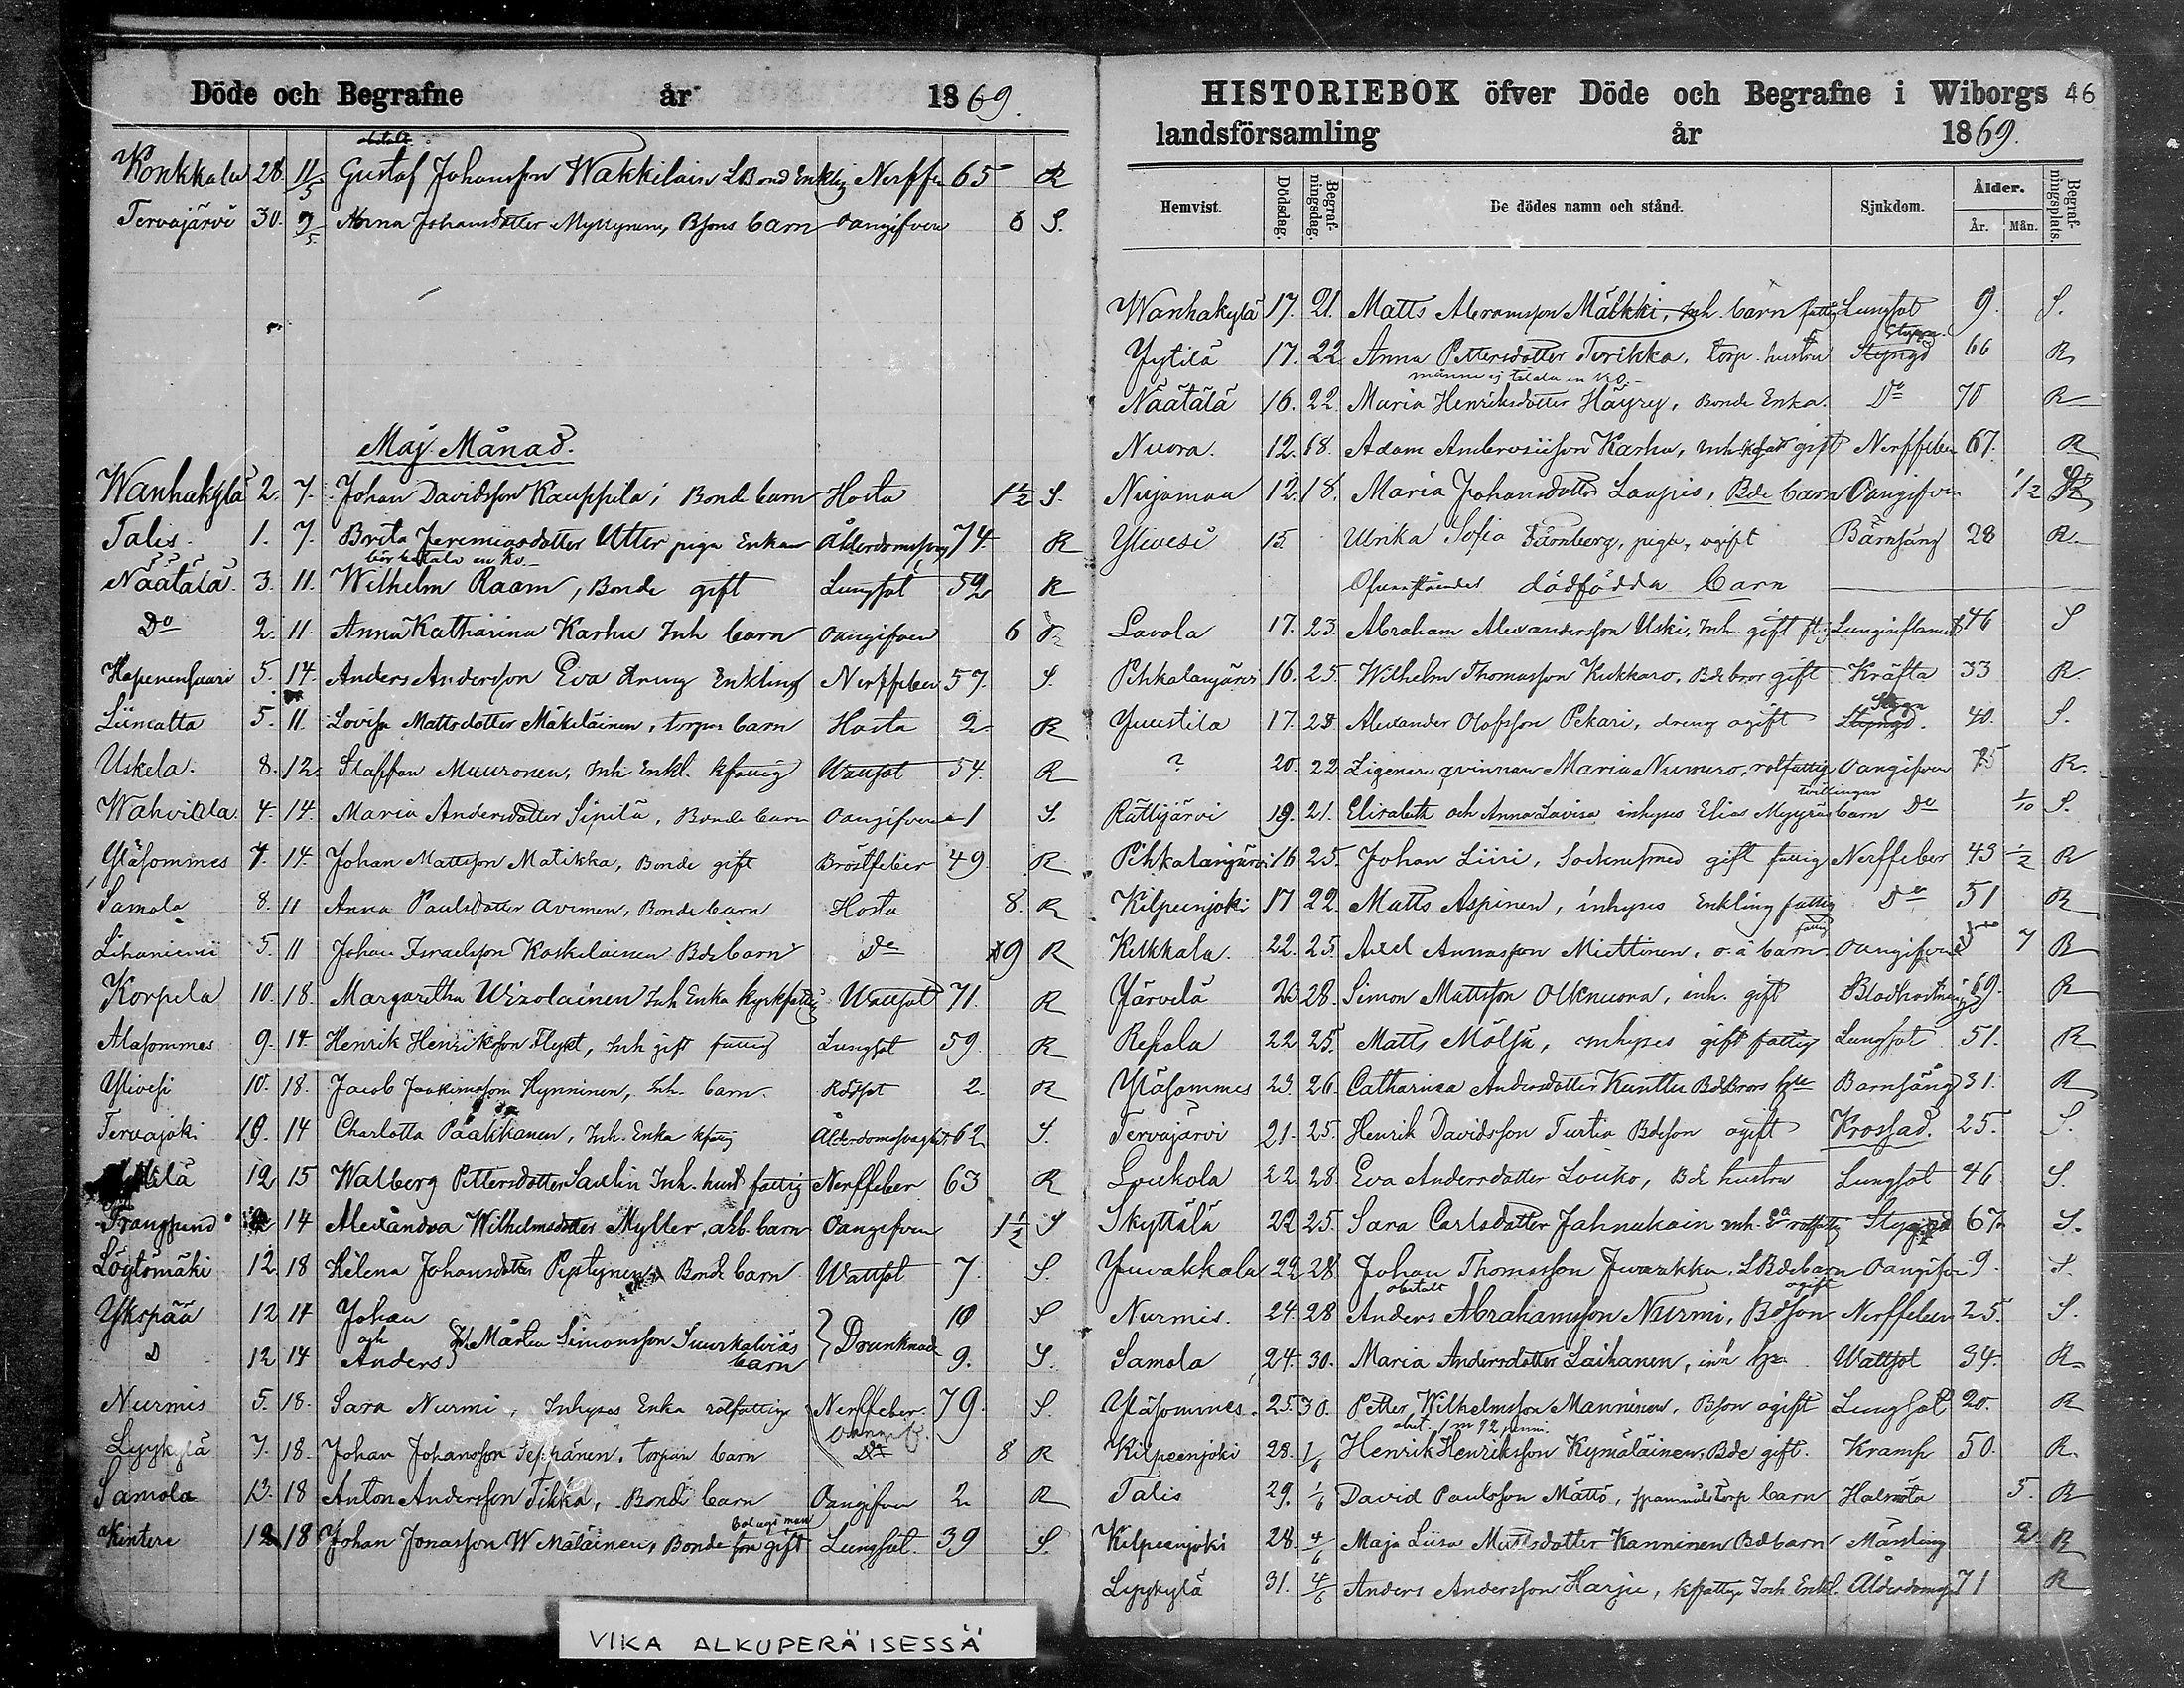 Döde och Begrafne år 1869.
obetalt
Konkkala 28. 11/5 Gustaf Johansson Wakkilain LBond Enkling Nerffe 65 R
Tervajärvi 30. 9/5 Anna Johansdotter Myrrynen, Bsons barn oangifven 6 S.
Maj Månad.
Wanhakylä 2. 7. Johan Davidsson Kauppila, Bonde barn Hosta 1½ S.
Talis 1. 7. Brita Jeremiasdotter Utter piga Enka Ålderdomssvag 74. R
bör betala en ko
Näätälä. 3. 11. Wilhelm Raam, Bonde gift Lungsot 52 R
Do 2. 11. Anna Katharina Karhu Inh barn oangifven 6 R
Hapenensaari 5. 14. Anders Andersson Eva dreng Enkling Nerffeber 57. S.
Liimatta 5. 11. Lovisa Mattsdotter Mäkeläinen, torpar barn Hosta 2 R
Uskela. 8. 12. Staffan Muuronen, Inh Enkl. kfattig Wattsot 54. R
Wahvilala. 4. 14. Maria Andersdotter Sipilä, Bonde barn Oangifven 1 S.
Yläsommes 7. 14. Johan Mattsson Matikka, Bonde gift Bröstfeber 49. R
Samola 8. 11 Anna Paulsdotter Avinen, Bonde barn Hosta 8. R
Lihaniemi 5. 11 Johan Israelsson Koskelainen Bde barn Do 9 R
Korpela 10. 18. Margaretha Wirolainen Inh Enka kyrkfattig Wattsot 71. R
Alasommes 9. 14 Henrik Henriksson Flykt, Inh gift fattig Lungsot 59. R
Ylivesi 10. 18. Jacob Joakimsson Hynninen, Inh. barn. Rödsot 2. R
Tervajoki 19. 14 Charlotta Päälikkänen, Inh. Enka kfattig Ålderdomssvaghet 62 S.
12 15 Walberg Pettersdotter Saxlin Inh. hust fattig Nerffeber 63 R
Trangsund 14 Alexandra Wilhelmsdotter Myller, arb. barn Oangifven 1½ S
Löytömäki 12. 18 Helena Johansdotter Pystynen Bonde barn Wattsot 7. S.
Ykspää 12 14 Johan 10 S
och Inh Mårten Simonsson Suurkalviäs Drunknade
D 12 14 Anders barn 9. S.
Nurmis 5. 18. Sara Nurmi, Inhyses Enka rotfattig Nerffeber. 79. S.
Oangif.
Lyykylä 7. 18. Johan Johansson Seppänen, torpare barn Do 8 R
Samola 13. 18 Anton Andersson Tikka, Bonde barn Oangifven 2 R
bolagsman
Kintere 12 18 Johan Jonasson W Mäläinen, Bonde son gift Lungsot. 39 S.
VIKA ALKUPERÄISESSÄ
HISTORIEBOK öfver Döde och Begrafne i Wiborgs 46
landsförsamling år 1869.
Hemvist. Dödsdag. Begrafningsdag. De dödes namn och stånd. Sjukdom. Ålder. År. Mån. Begrafningsplats.
Wanhakylä 17. 21. Matts Abramsson Mälkki, Inh. barn fattig Lungsot 9. S.
Stygn.
Yytilä 17. 22 Anna Pettersdotter Torikka, torp. hustru Styngd 66 R
mannen ej betala en ko.
Näätälä 16. 22 Maria Henriksdotter Häyry, Bonde Enka. Do 70 R
Nuora. 12. 18. Adam Ambrosiisson Karhu, Inh gift Nerffeber 67. R
Nujamaa 12. 18. Maria Johansdotter Laupis, Bde barn Oangifven 1/2 R
Ylivesi 15. Ulrika Sofia Tårnberg, piga, ogift Barnsäng 28 R.
Ofvanstående dödfödda barn
Lavola 17. 23. Abraham Alexandersson Uski, Inh. gift ftg. Lunginflamat. 46 S
Pihkalanjärvi 16. 25. Wilhelm Thomasson Kukkaro, Bde bror gift Kräfta 33 R
Stygn
Yuustila 17. 23. Alexander Olofsson Pekari, dreng ogift Styngd. 40. S.
? 20. 22 Zigenerqvinnan Maria Numero, rotfattig Oangifven 75 R.
tvillingar
Rättijärvi 19. 21. Elisabeth och Anna Lovisa inhyses Elias Myyräs barn Do 1/10 S.
Pihkalanjärvi 16 25. Johan Liiri, Sockensmed gift fattig Nerffeber 43 1/2 R
Kilpeenjoki 17 22. Matts Aspinen, inhyses Enkling fattig Do 51 R
fattig
Kelkkala. 22. 25. Axel Annasson Miettinen, o. ä barn. Oangifven 7 R
Järvelä 23. 28. Simon Mattsson Olknuora, inh. gift Blodhostning 69. R
Repola 22 25. Matts Mölsä, inhyses gift fattig Lungsot 51. R
Yläsommes 23. 26. Catharina Andersdotter Kunttu Bde Brors hu Barnsäng 31. R
Tervajärvi 21. 25. Henrik Davidsson Turtia Bdeson ogift Krossad. 25. S.
Loukola 22 28. Eva Andersdotter Louko, Bd hustru Lungsot 46 S.
Skyttälä 22 25. Sara Carlsdotter Jahnukain inh. Ea rotfattig Stygnd 67. S.
Juvakkala 22 28 Johan Thomasson Juvakka, LBde barn Oangifven 9. S.
obetalt ogift
Nurmis. 24. 28 Anders Abrahamsson Nurmi, Bdson Nerffeber 25. S.
Samola 24. 30. Maria Andersdotter Laihanen, inh hu. Wattsot 34. R.
Yläsommes. 25. 30. Petter Wilhelmsson Manninen, Bson ogift Lungsot 20. R
obet. 1 m 92 penni.
Kilpeenjoki 28. 1/6 Henrik Henriksson Kymäläinen, Bde gift. Kramp 50. R.
Talis 29. 1/6 David Paulsson Mättö, spannmåls torp barn Halsröta 5. R
Kilpeenjoki 28. 4/6 Maja Liisa Mattsdotter Kanninen Bde barn Mässling 2 R
Lyykylä 31. 4/6 Anders Andersson Harju, kfattig Inh. Enkl. Ålderdomssv 71 R